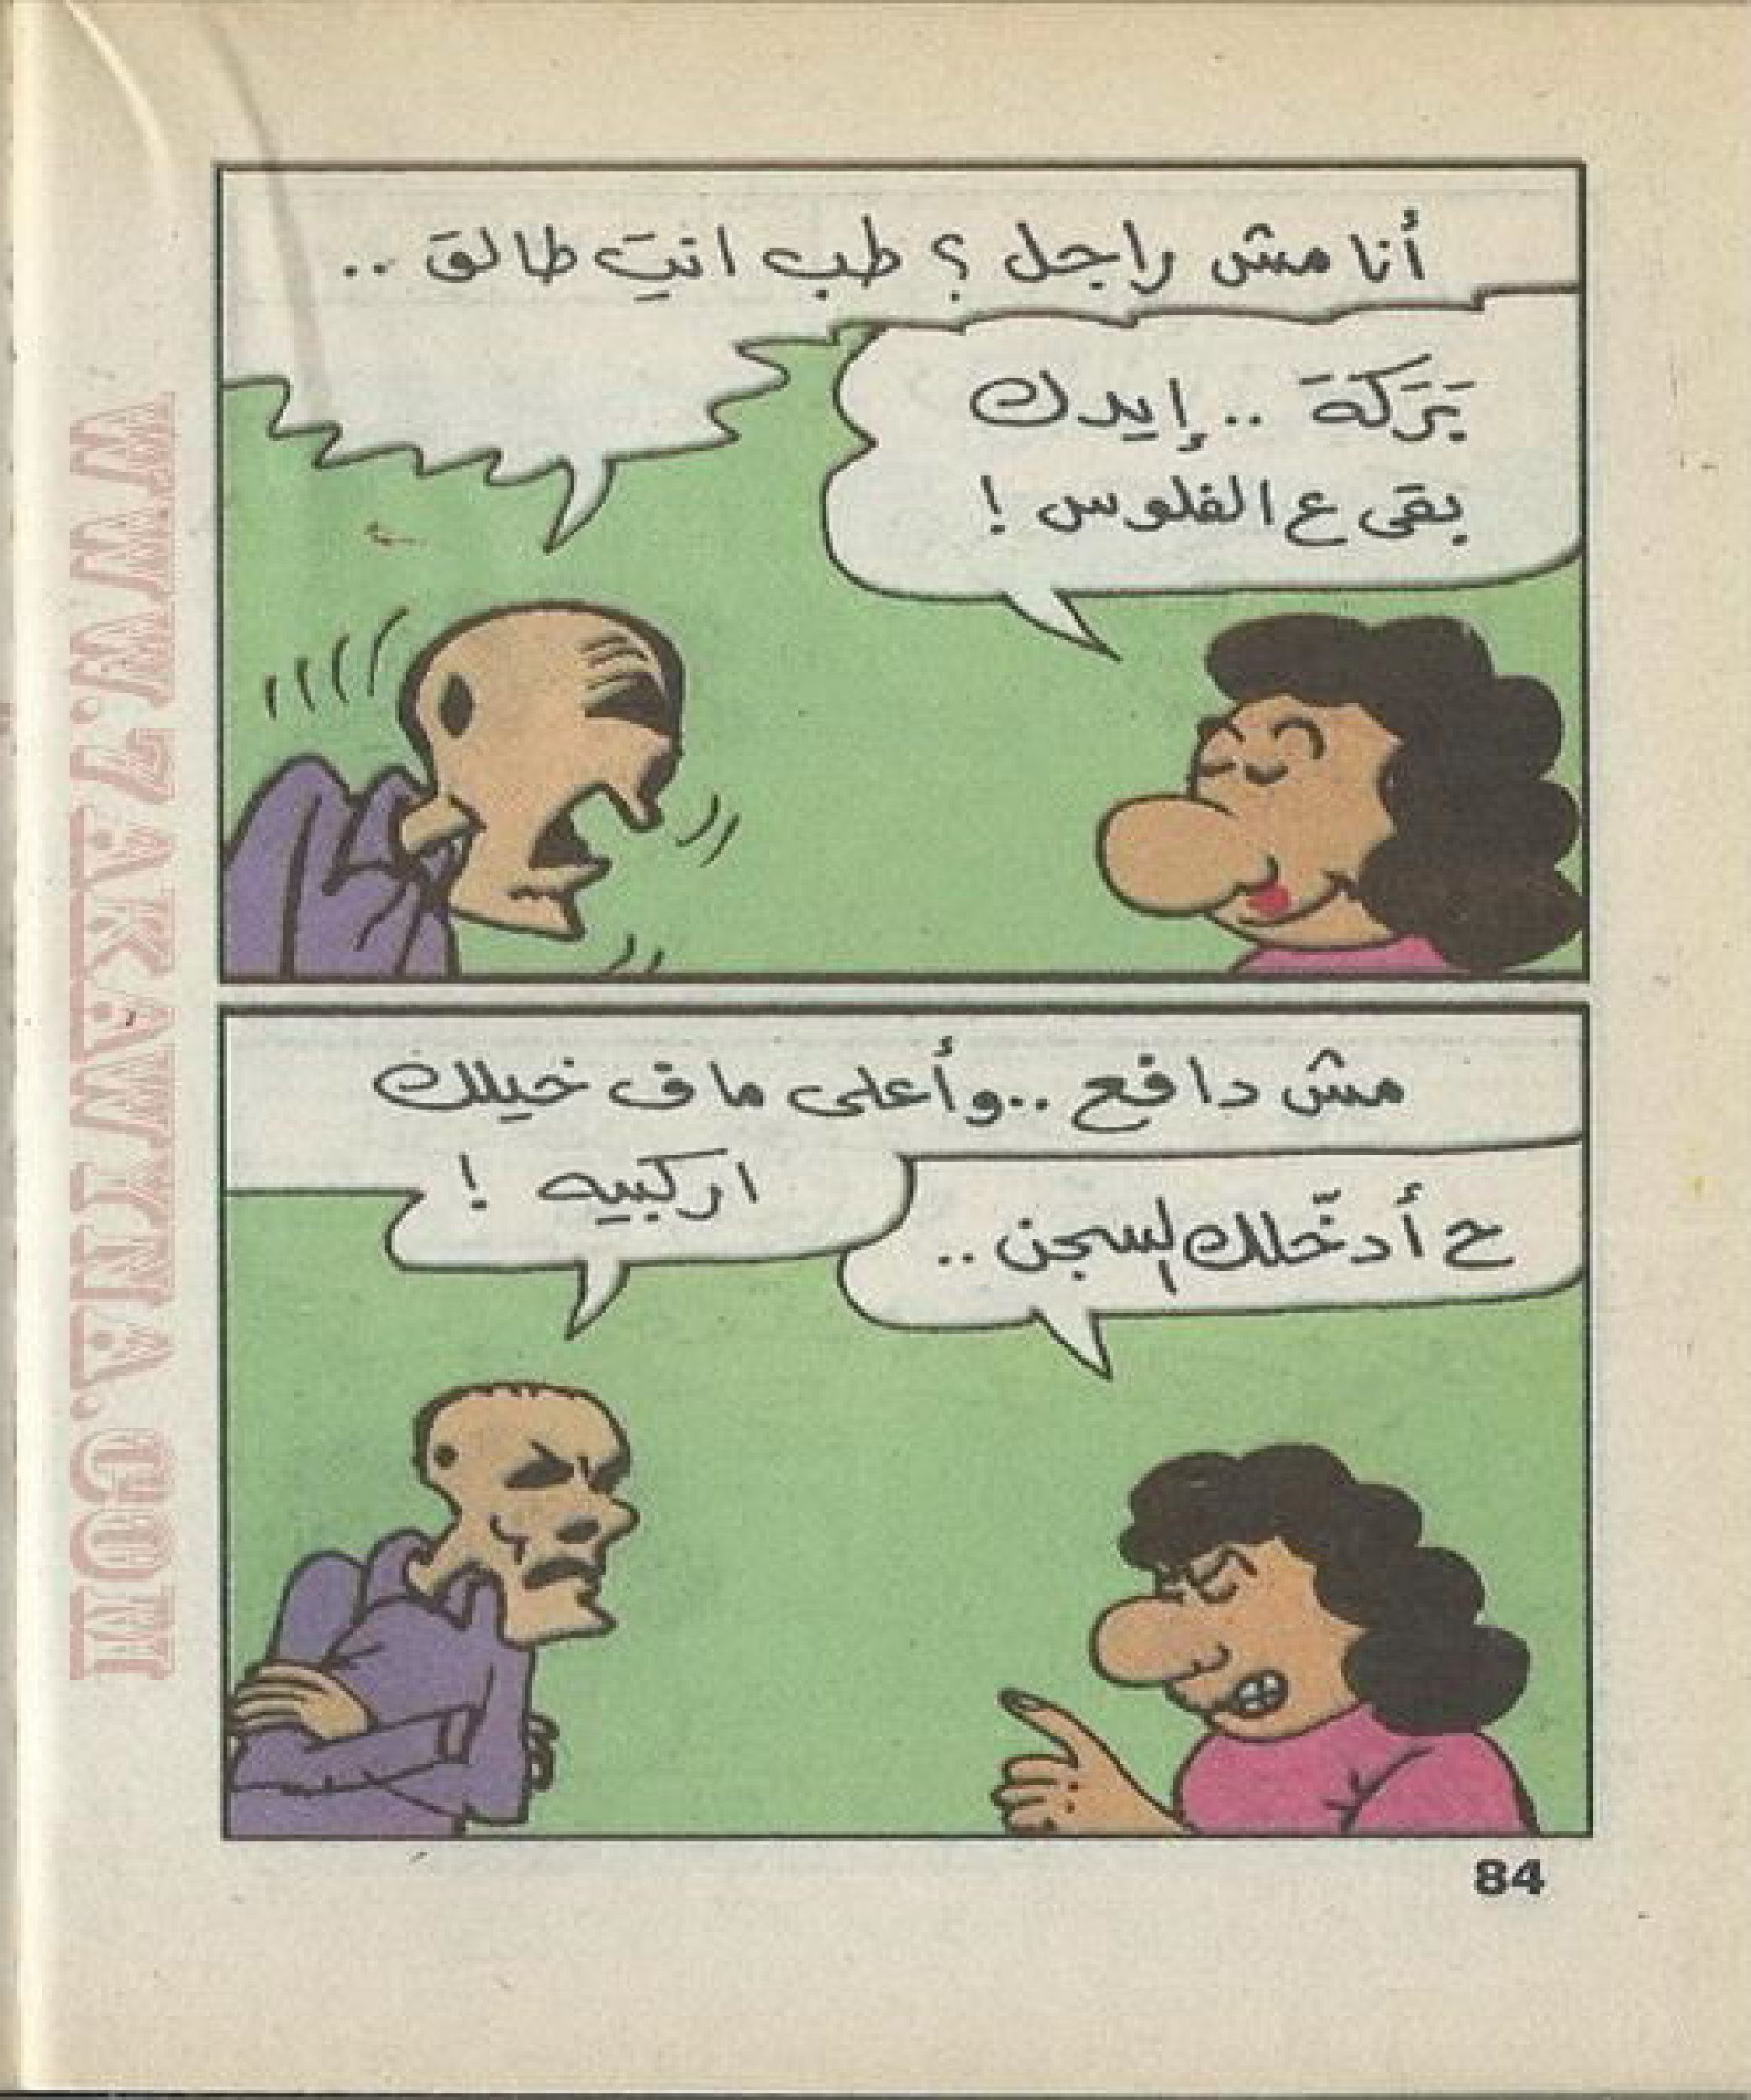 أنا مش راجل ؟ طب انتِ طالق ..
بَرَكَة .. إيدك
بقى ع الفلوس !
مش دافع .. وأعلى ما ف خيلك
اركبيه !
ح أدخّلك السجن ..
84
WWW.7AKAWTNA.COM